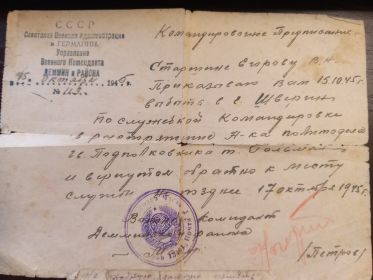 СССР
Советская Военная Администрация
в ГЕРМАНИИ
Управления
Военного Коменданта
ДЕММИН и РАЙОНА
15. Октября 1945
№ 113
Командировочное Предписание.
Старшине Егорову В.Н.
Приказываю Вам 15.10.45г.
выбыть в г. Шверин
По служебной Командировке
в распоряжение Н-ка политотдела
гв. Подполковника т.
и вернутся обратно к месту
службы не позднее 17 октября 1945г.
Военный комендант
Деммин и района
/Петров/